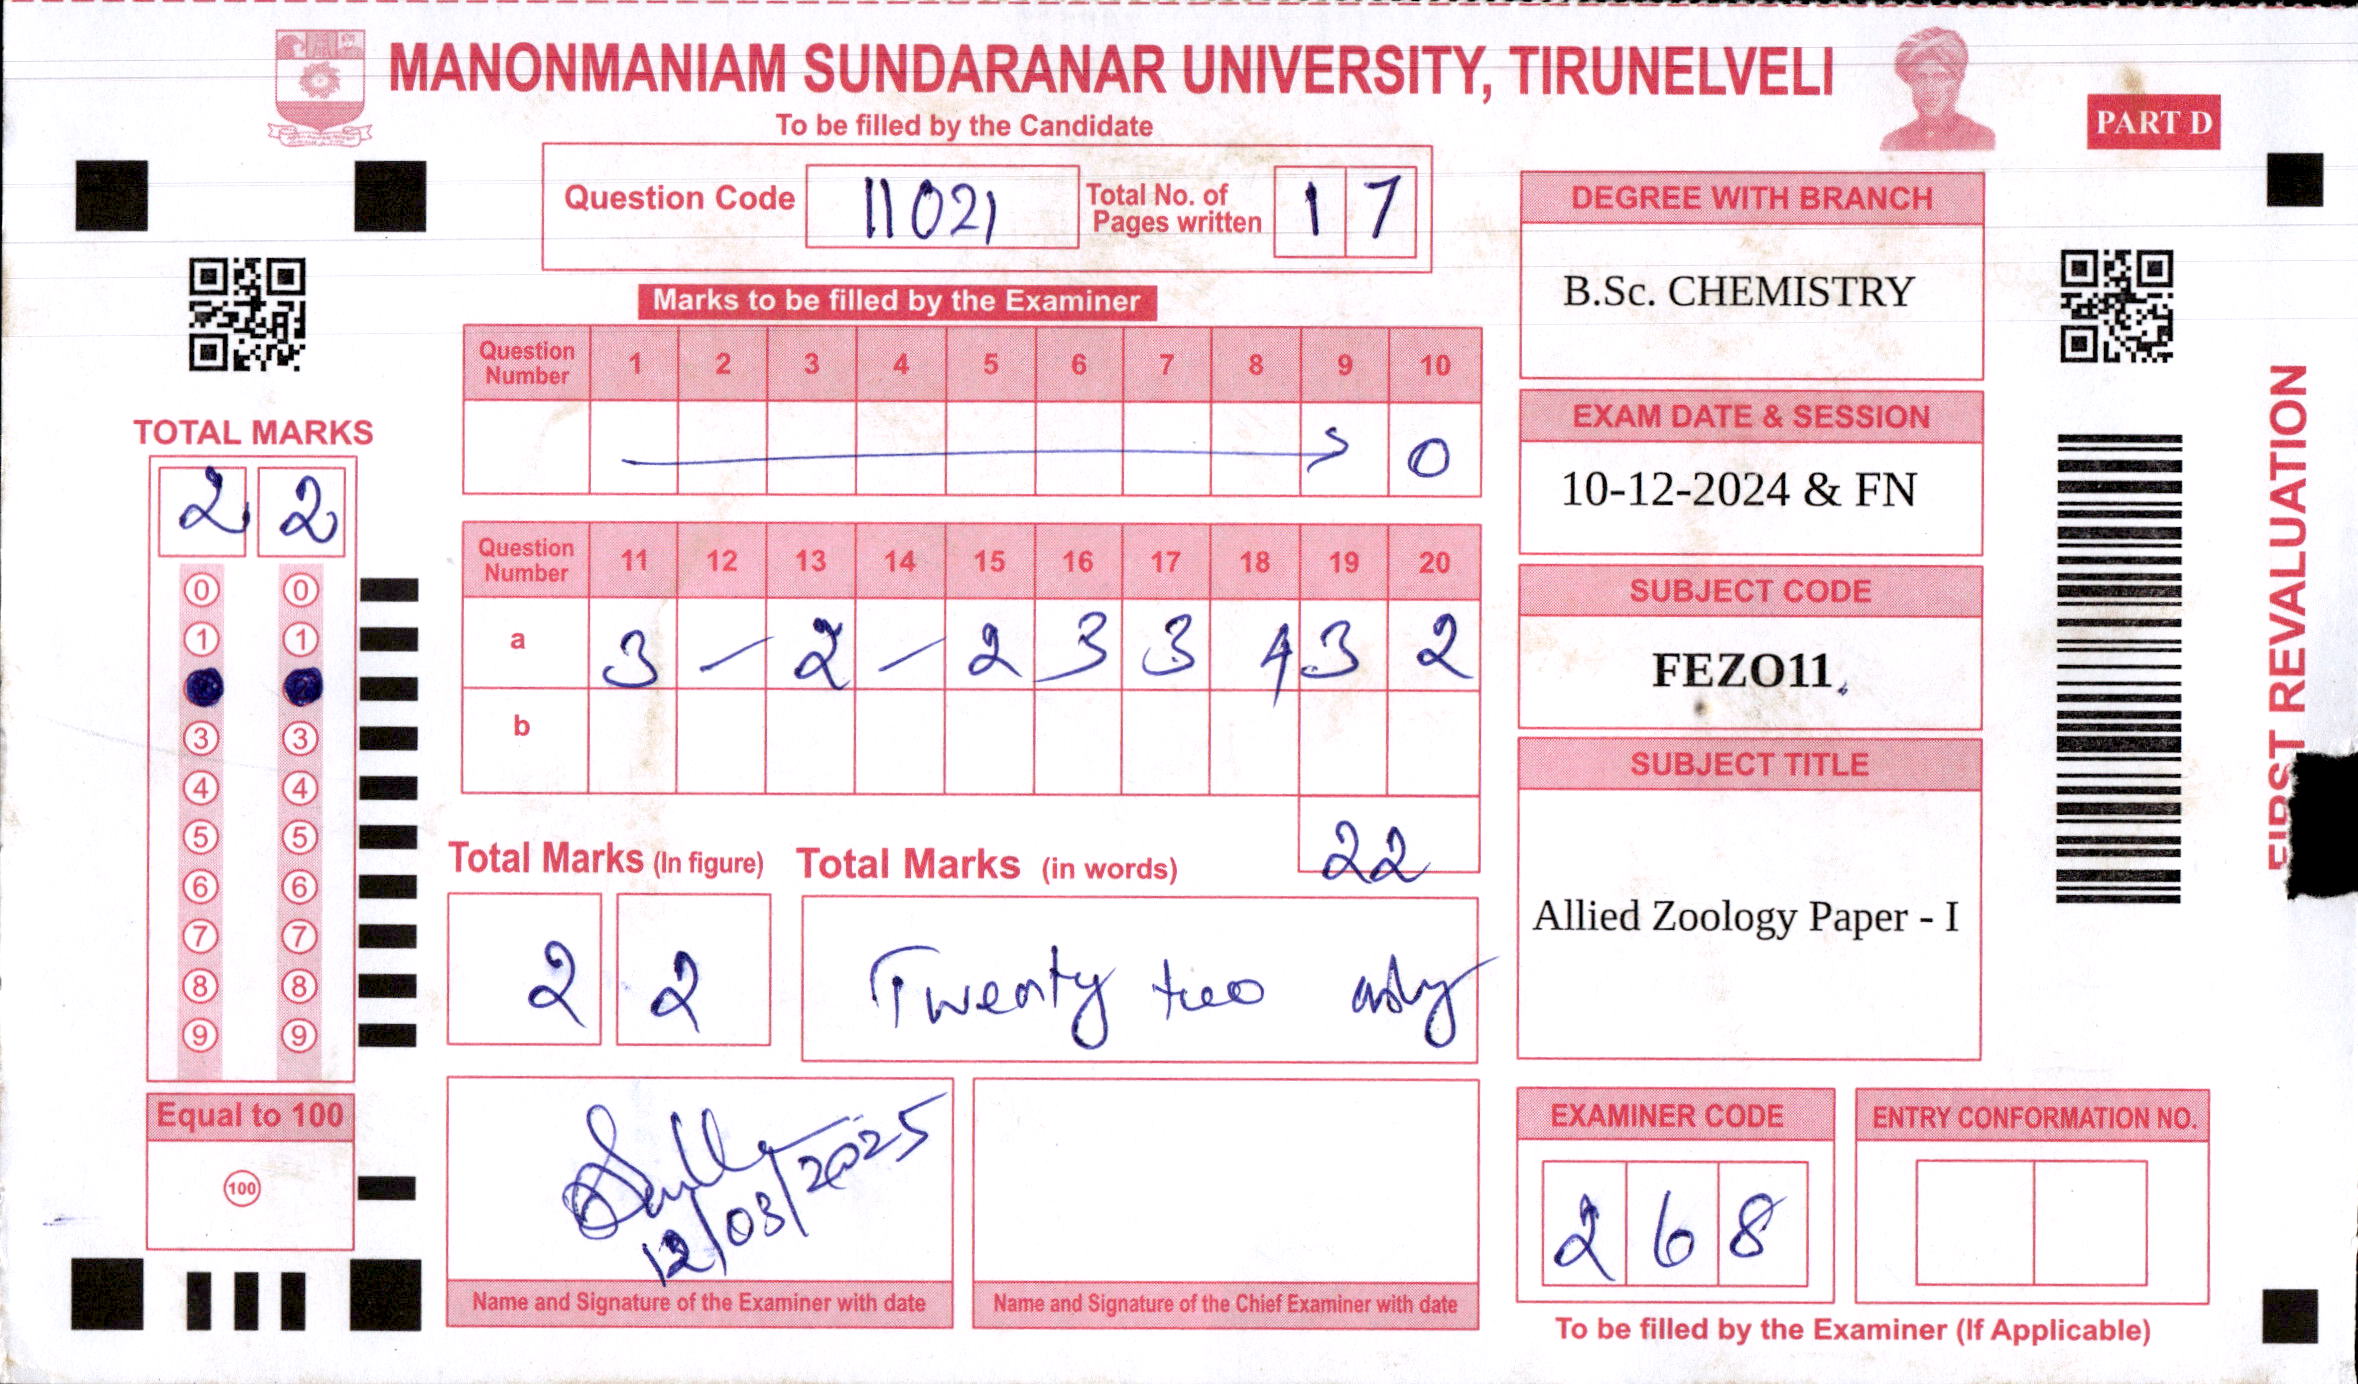 MANONMANIAM SUNDARANAR UNIVERSITY, TIRUNELVELI
To be filled by the Candidate
PART D
Question Code 11021 Total No. of Pages written 1 7
Marks to be filled by the Examiner
Question Number 1 2 3 4 5 6 7 8 9 10
0
Question Number 11 12 13 14 15 16 17 18 19 20
a 3 - 2 - 2 3 3 4 3 2
b
22
Total Marks (In figure) Total Marks (in words)
2 2 Twenty two only
12/03/2025
Name and Signature of the Examiner with date
Name and Signature of the Chief Examiner with date
TOTAL MARKS
2 2
0 0
1 1
3 3
4 4
5 5
6 6
7 7
8 8
9 9
Equal to 100
100
DEGREE WITH BRANCH
B.Sc. CHEMISTRY
EXAM DATE & SESSION
10-12-2024 & FN
SUBJECT CODE
FEZO11
SUBJECT TITLE
Allied Zoology Paper - I
EXAMINER CODE
2 6 8
ENTRY CONFORMATION NO.
To be filled by the Examiner (If Applicable)
FIRST REVALUATION